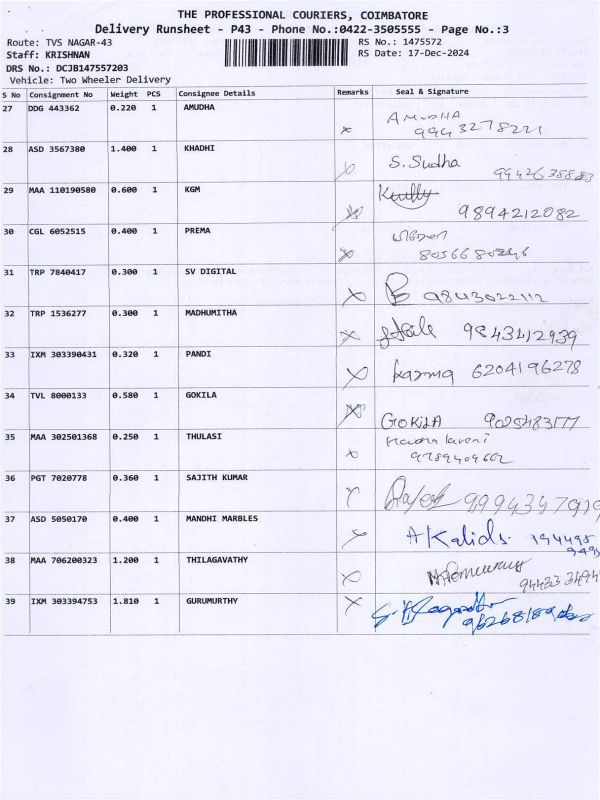 THE PROFESSIONAL COURIERS, COIMBATORE
Delivery Runsheet - P43 - Phone No.:0422-3505555 - Page No.:3
Route: TVS NAGAR-43 RS No.: 1475572
Staff: KRISHNAN RS Date: 17-Dec-2024
DRS No.: DCJB147557203
Vehicle: Two Wheeler Delivery
S No Consignment No Weight PCS Consignee Details Remarks Seal & Signature
27 DDG 443362 0.220 1 AMUDHA
AMUDHA
9943278221
28 ASD 3567380 1.400 1 KHADHI
S. Sudha
9942638883
29 MAA 110190580 0.600 1 KGM
9894212082
30 CGL 6052515 0.400 1 PREMA
8056680246
31 TRP 7840417 0.300 1 SV DIGITAL
9843022112
32 TRP 1536277 0.300 1 MADHUMITHA
9843412939
33 IXM 303390431 0.320 1 PANDI
6204196278
34 TVL 8000133 0.580 1 GOKILA
GOKILA 9025483177
35 MAA 302501368 0.250 1 THULASI
9789409602
36 PGT 7020778 0.360 1 SAJITH KUMAR
Rajesh
37 ASD 5050170 0.400 1 MANDHI MARBLES
38 MAA 706200323 1.200 1 THILAGAVATHY
39 IXM 303394753 1.810 1 GURUMURTHY